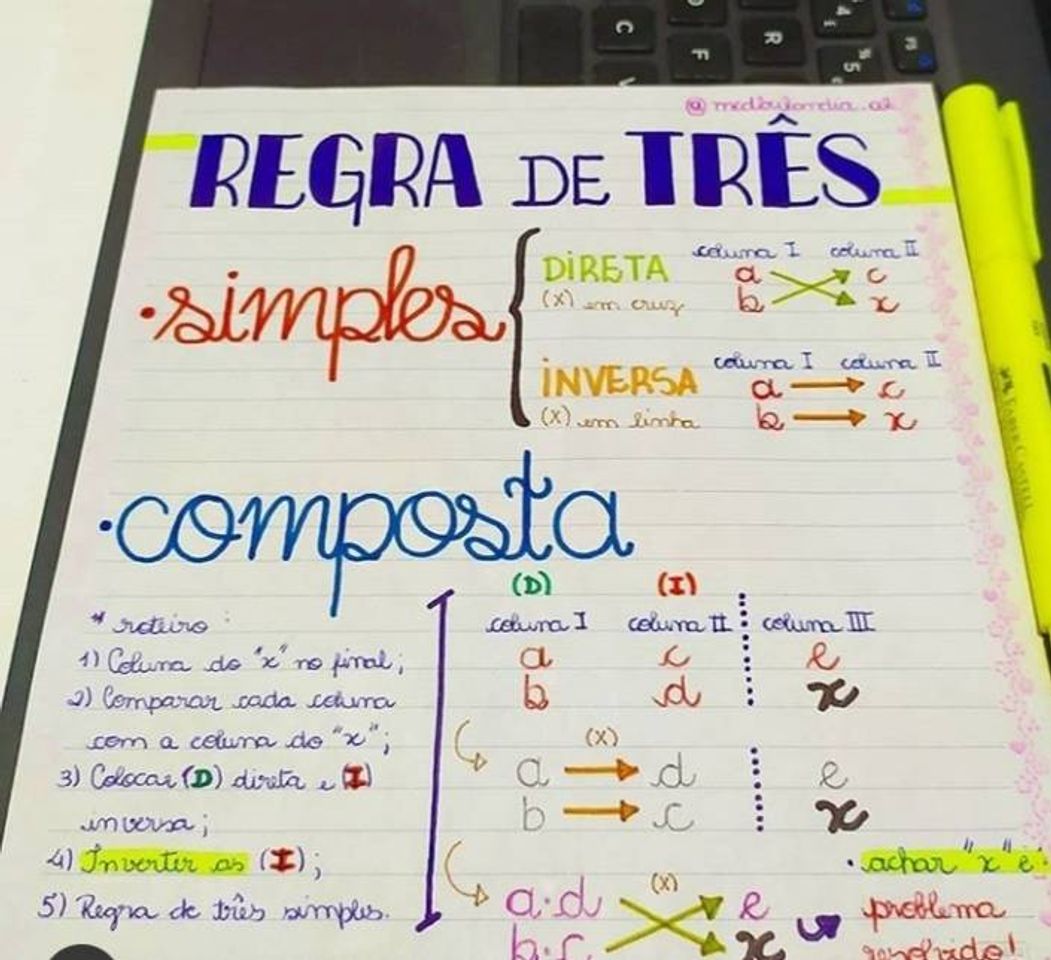 REGRA DE TRÊS
•simples
DIRETA
(X) em cruz
coluna I coluna II
a c
b x
INVERSA
(X) em linha
coluna I coluna II
a c
b x
•composta
* roteiro:
1) Coluna do "x" no final;
2) Comparar cada coluna
com a coluna do "x";
3) Colocar (D) direta e (I)
inversa;
4) Inverter as (I);
5) Regra de três simples.
(D) (I)
coluna I coluna II coluna III
a c e
b d x
(X)
a d e
b c x
(X)
a·d e
b·c x
• achar "x" e
problema
resolvido!
FABER CASTELL
C
F
R
4
5